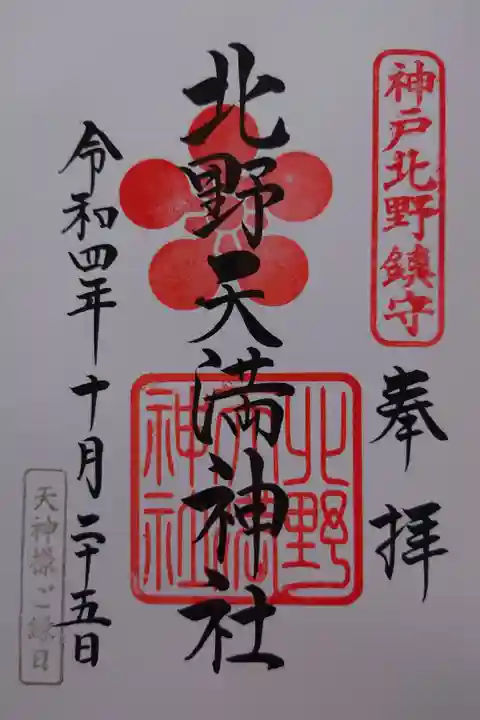 神戸北野鎮守
奉拝
北野天満神社
北野天満神社
令和四年十月二十五日
天神様ご縁日